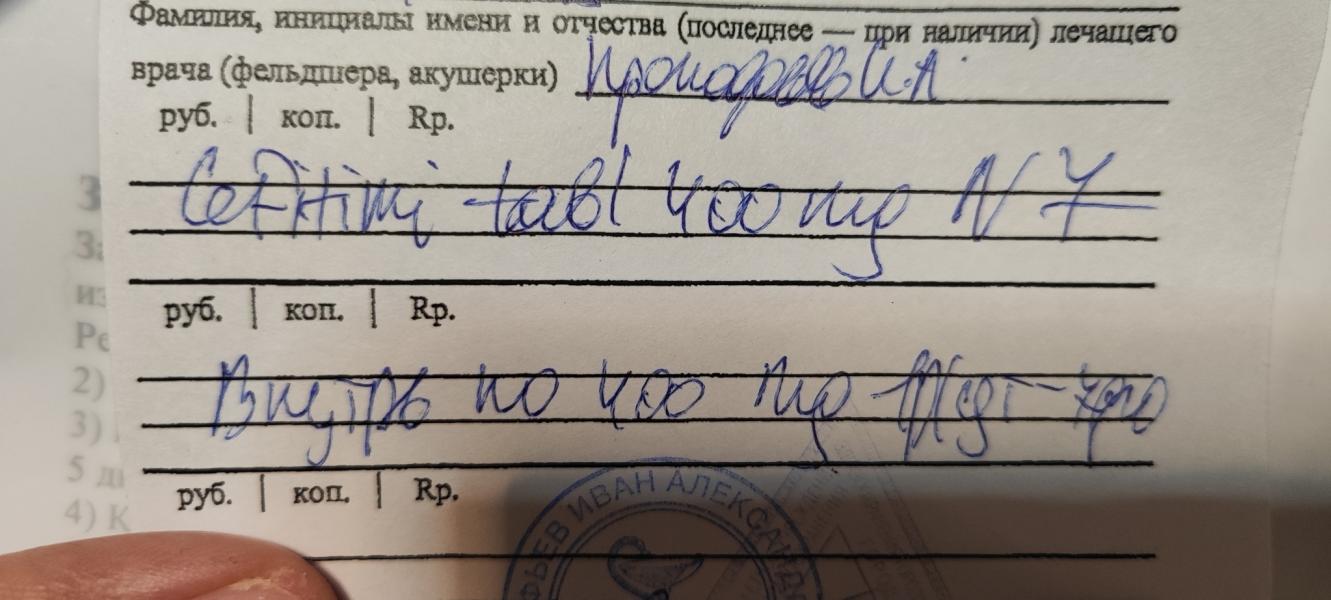 Фамилия, инициалы имени и отчества (последнее — при наличии) лечащего
врача (фельдшера, акушерки) И.А.
руб. | коп. | Rp.
tabl 400 mg N 7
руб. | коп. | Rp.
Внутрь по 400 mg
руб. | коп. | Rp.
ФЬЕВ ИВАН АЛЕКСАНД
З
За
из
Ре
2)
3)
5 д
4) К